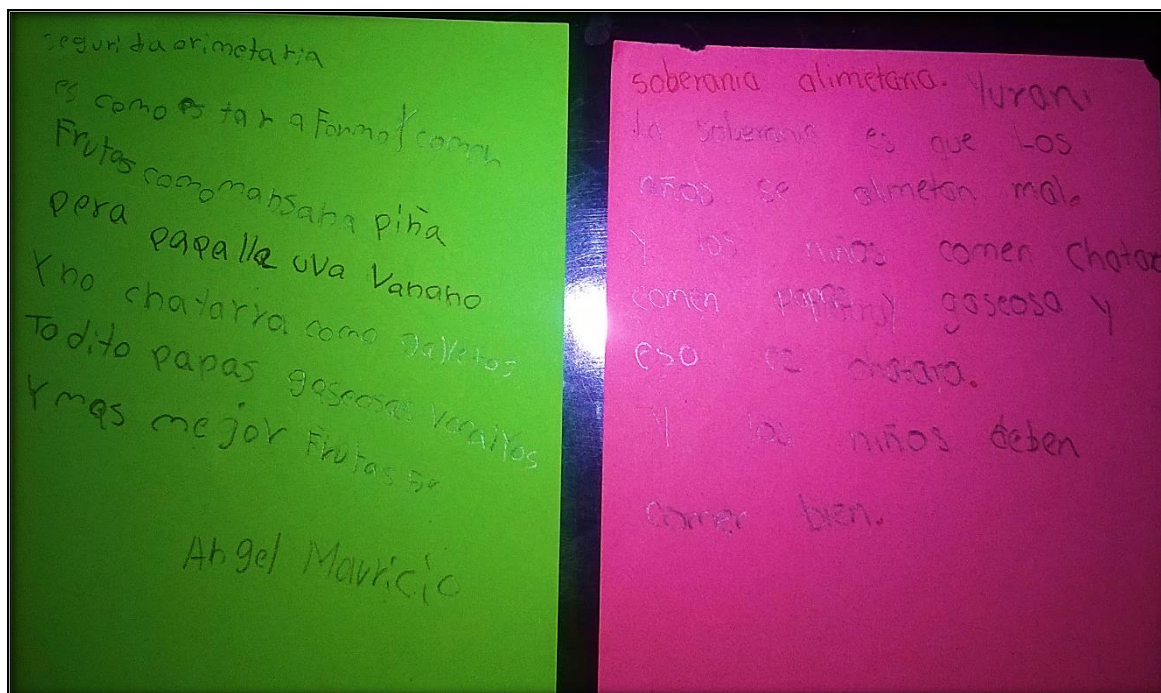 segurida orimetaria
es como es tar a Forma y comen
Frutas como mansana piña
pera papalla uva Vanano
Y no chatarra como galletas
Todito papas gaseosas
Y mas mejor Frutas
Angel Mauricio
soberania alimetaria. Yurani
la soberania es que Los
años se almetan mal.
Y los niños comen Chatar
comen y gaseosa y
eso es chatara.
Y los niños deben
comer bien.